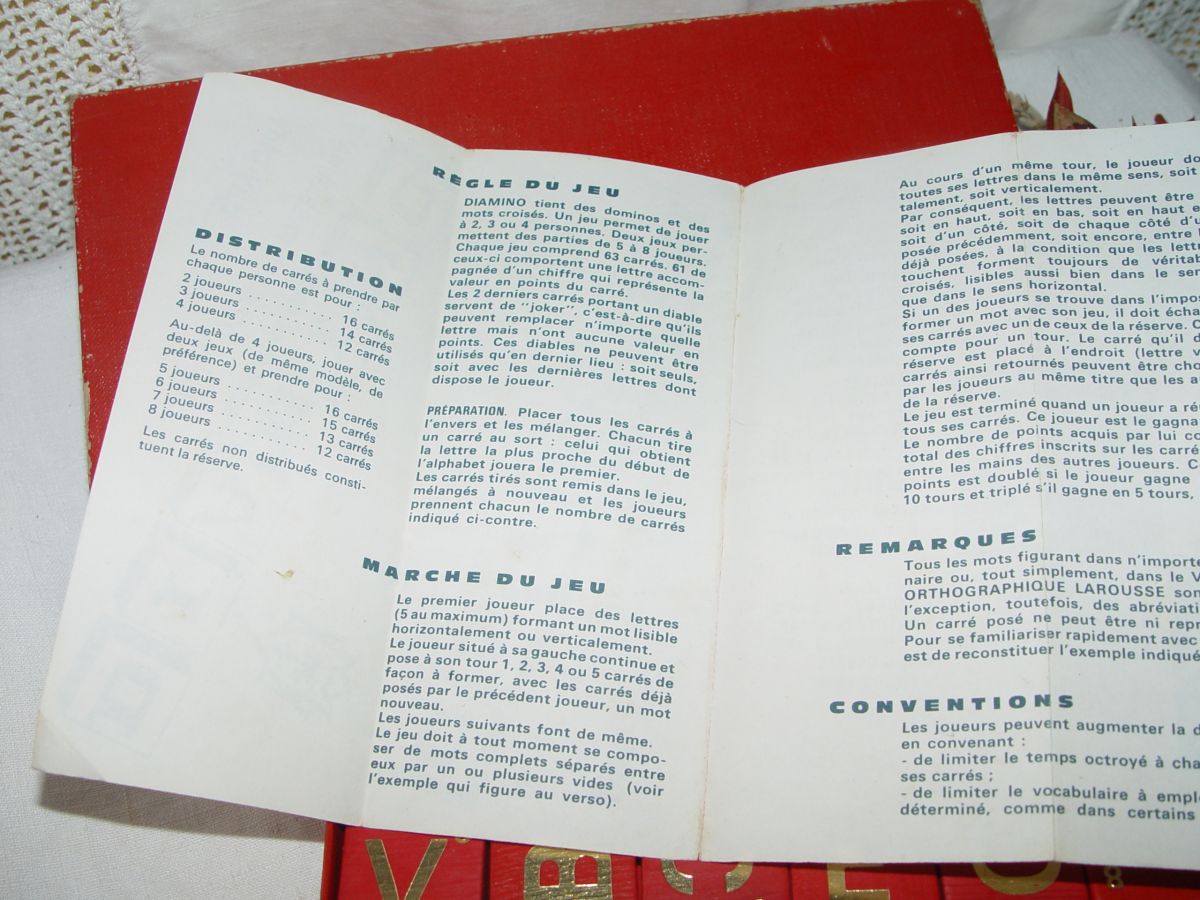 DISTRIBUTION
Le nombre de carrés à prendre par
chaque personne est pour :
2 joueurs . . . . . . . . . . . 16 carrés
3 joueurs . . . . . . . . . . . 14 carrés
4 joueurs . . . . . . . . . . . 12 carrés
Au-delà de 4 joueurs, jouer avec
deux jeux (de même modèle, de
préférence) et prendre pour :
5 joueurs . . . . . . . . . . . 16 carrés
6 joueurs . . . . . . . . . . . 15 carrés
7 joueurs . . . . . . . . . . . 13 carrés
8 joueurs . . . . . . . . . . . 12 carrés
Les carrés non distribués consti-
tuent la réserve.
RÈGLE DU JEU
DIAMINO tient des dominos et des
mots croisés. Un jeu permet de jouer
à 2, 3 ou 4 personnes. Deux jeux per-
mettent des parties de 5 à 8 joueurs.
Chaque jeu comprend 63 carrés. 61 de
ceux-ci comportent une lettre accom-
pagnée d'un chiffre qui représente la
valeur en points du carré.
Les 2 derniers carrés portant un diable
servent de "joker", c'est-à-dire qu'ils
peuvent remplacer n'importe quelle
lettre mais n'ont aucune valeur en
points. Ces diables ne peuvent être
utilisés qu'en dernier lieu : soit seuls,
soit avec les dernières lettres dont
dispose le joueur.
PRÉPARATION. Placer tous les carrés à
l'envers et les mélanger. Chacun tire
un carré au sort : celui qui obtient
la lettre la plus proche du début de
l'alphabet jouera le premier.
Les carrés tirés sont remis dans le jeu,
mélangés à nouveau et les joueurs
prennent chacun le nombre de carrés
indiqué ci-contre.
MARCHE DU JEU
Le premier joueur place des lettres
(5 au maximum) formant un mot lisible
horizontalement ou verticalement.
Le joueur situé à sa gauche continue et
pose à son tour 1, 2, 3, 4 ou 5 carrés de
façon à former, avec les carrés déjà
posés par le précédent joueur, un mot
nouveau.
Les joueurs suivants font de même.
Le jeu doit à tout moment se compo-
ser de mots complets séparés entre
eux par un ou plusieurs vides (voir
l'exemple qui figure au verso).
Au cours d'un même tour, le joueur do
toutes ses lettres dans le même sens, soit
talement, soit verticalement.
Par conséquent, les lettres peuvent être
soit en haut, soit en bas, soit en haut e
soit d'un côté, soit de chaque côté d'u
posée précédemment, soit encore, entre l
déjà posées, à la condition que les lett
touchent forment toujours de véritab
croisés, lisibles aussi bien dans le se
que dans le sens horizontal.
Si un des joueurs se trouve dans l'impos
former un mot avec son jeu, il doit écha
ses carrés avec un de ceux de la réserve. C
compte pour un tour. Le carré qu'il d
réserve est placé à l'endroit (lettre v
carrés ainsi retournés peuvent être cho
par les joueurs au même titre que les a
de la réserve.
Le jeu est terminé quand un joueur a ré
tous ses carrés. Ce joueur est le gagna
Le nombre de points acquis par lui co
total des chiffres inscrits sur les carré
entre les mains des autres joueurs. C
points est doublé si le joueur gagne
10 tours et triplé s'il gagne en 5 tours,
REMARQUES
Tous les mots figurant dans n'importe
naire ou, tout simplement, dans le V
ORTHOGRAPHIQUE LAROUSSE son
l'exception, toutefois, des abréviati
Un carré posé ne peut être ni repr
Pour se familiariser rapidement avec
est de reconstituer l'exemple indiqué
CONVENTIONS
Les joueurs peuvent augmenter la d
en convenant :
- de limiter le temps octroyé à cha
ses carrés ;
- de limiter le vocabulaire à empl
déterminé, comme dans certains
V B